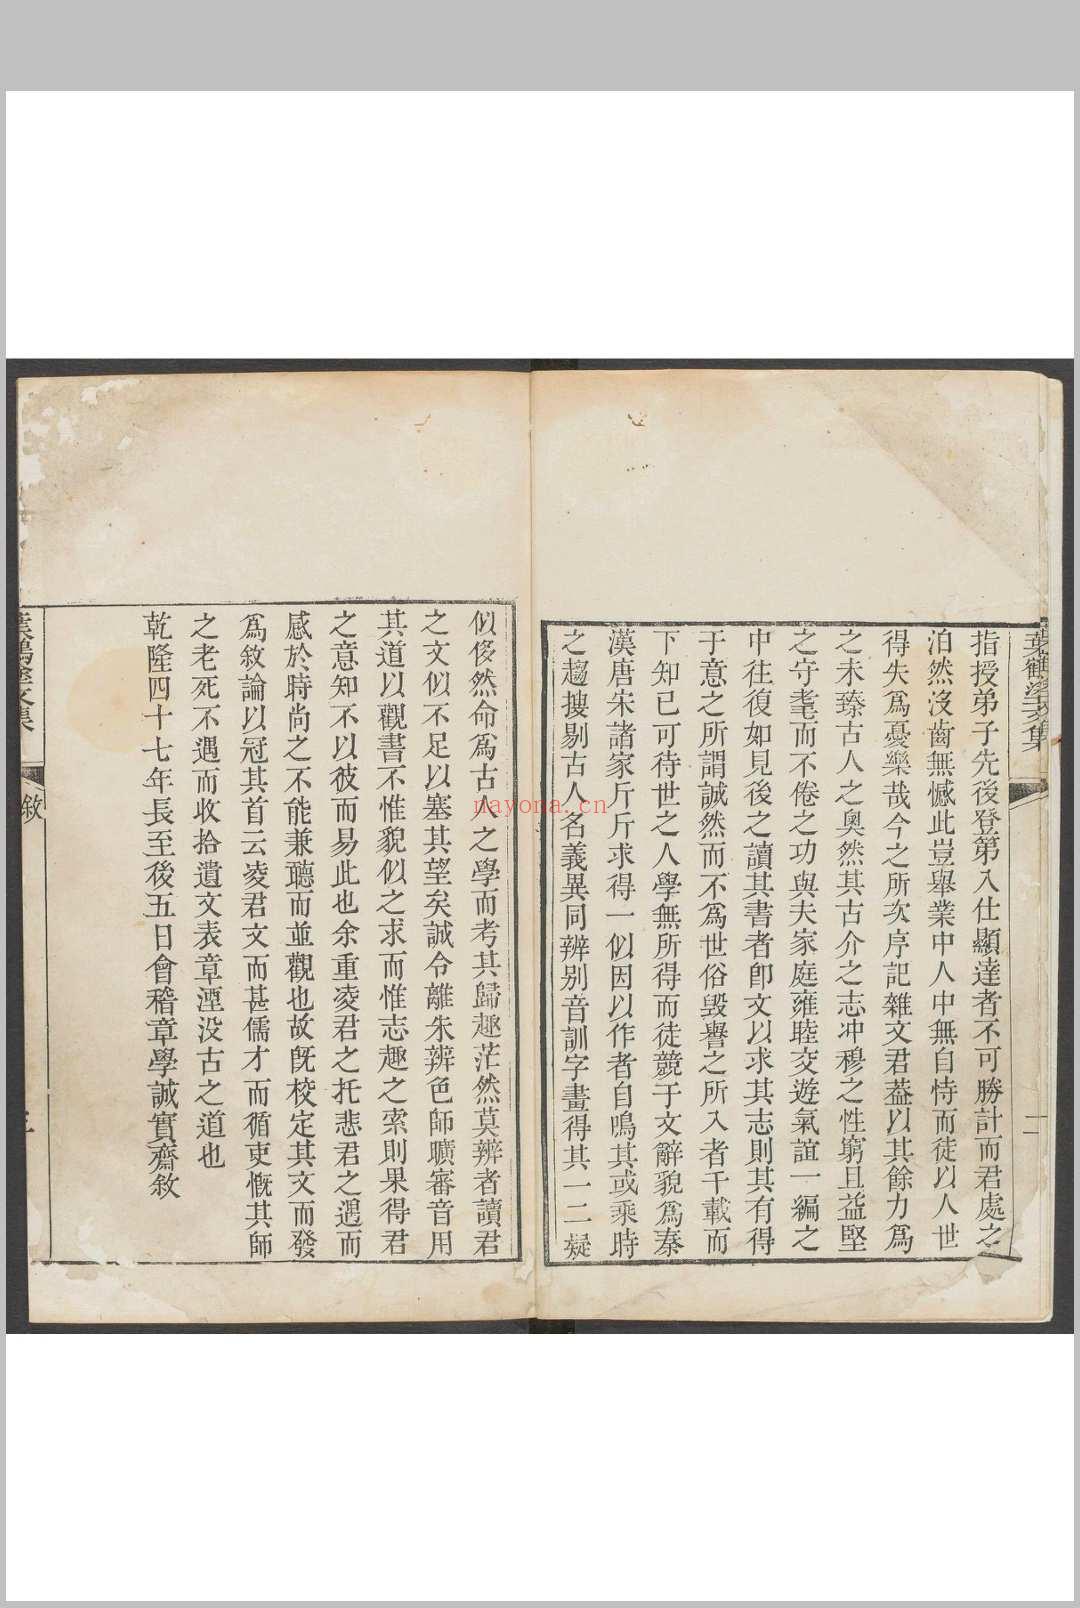 葉鶴塗文集
二
指授弟子先後登第入仕顯達者不可勝計而君處之
泊然沒齒無憾此豈舉業中人中無自恃而徒以人世
得失爲憂樂哉今之所次序記雜文君葢以其餘力爲
之未臻古人之奧然其古介之志冲穆之性窮且益堅
之守耄而不倦之功與夫家庭雍睦交遊氣誼一編之
中往復如見後之讀其書者卽文以求其志則其有得
于意之所謂誠然而不爲世俗毀譽之所入者千載而
下知已可待世之人學無所得而徒競于文辭貌爲秦
漢唐宋諸家斤斤求得一似因以作者自鳴其或乘時
之趨搜剔古人名義異同辨别音訓字畫得其一二疑
似侈然命爲古人之學而考其歸趣茫然莫辨者讀君
之文似不足以塞其望矣誠令離朱辨色師曠審音用
其道以觀書不惟貌似之求而惟志趣之索則果得君
之意知不以彼而易此也余重凌君之托悲君之遇而
感於時尚之不能兼聽而並觀也故旣校定其文而發
爲敘論以冠其首云凌君文而甚儒才而循吏慨其師
之老死不遇而收拾遺文表章湮没古之道也
乾隆四十七年長至後五日會稽章學誠實齋敘
葉鶴塗文集
敘
三
nayona.cn